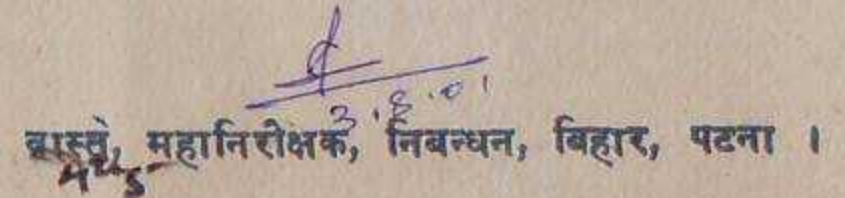 3.8.01
वास्ते, महानिरीक्षक, निबन्धन, बिहार, पटना ।